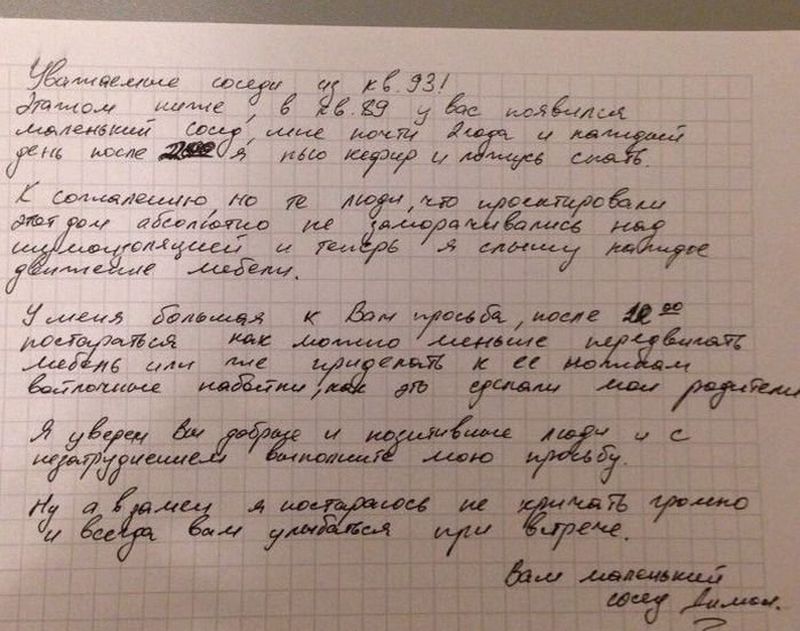 Уважаемые соседи из кв. 93!
Этажом ниже, в кв. 89 у вас появился
маленький сосед, мне почти 2 года и каждый
день после я пью кефир и ложусь спать.
К сожалению, но те люди, что проектировали
этот дом абсолютно не заморачивались над
шумоизоляцией и теперь я слышу каждое
движение мебели.
У меня большая к Вам просьба, после 00
постараться как можно меньше передвигать
мебель или же приделать к ее ножкам
войлочные набойки, как это сделали мои родители
Я уверен Вы добрые и позитивные люди и с
незатруднением выполните мою просьбу.
Ну а взамен я постараюсь не кричать громко
и всегда вам улыбаться при встрече.
Вам маленький
сосед Димон.